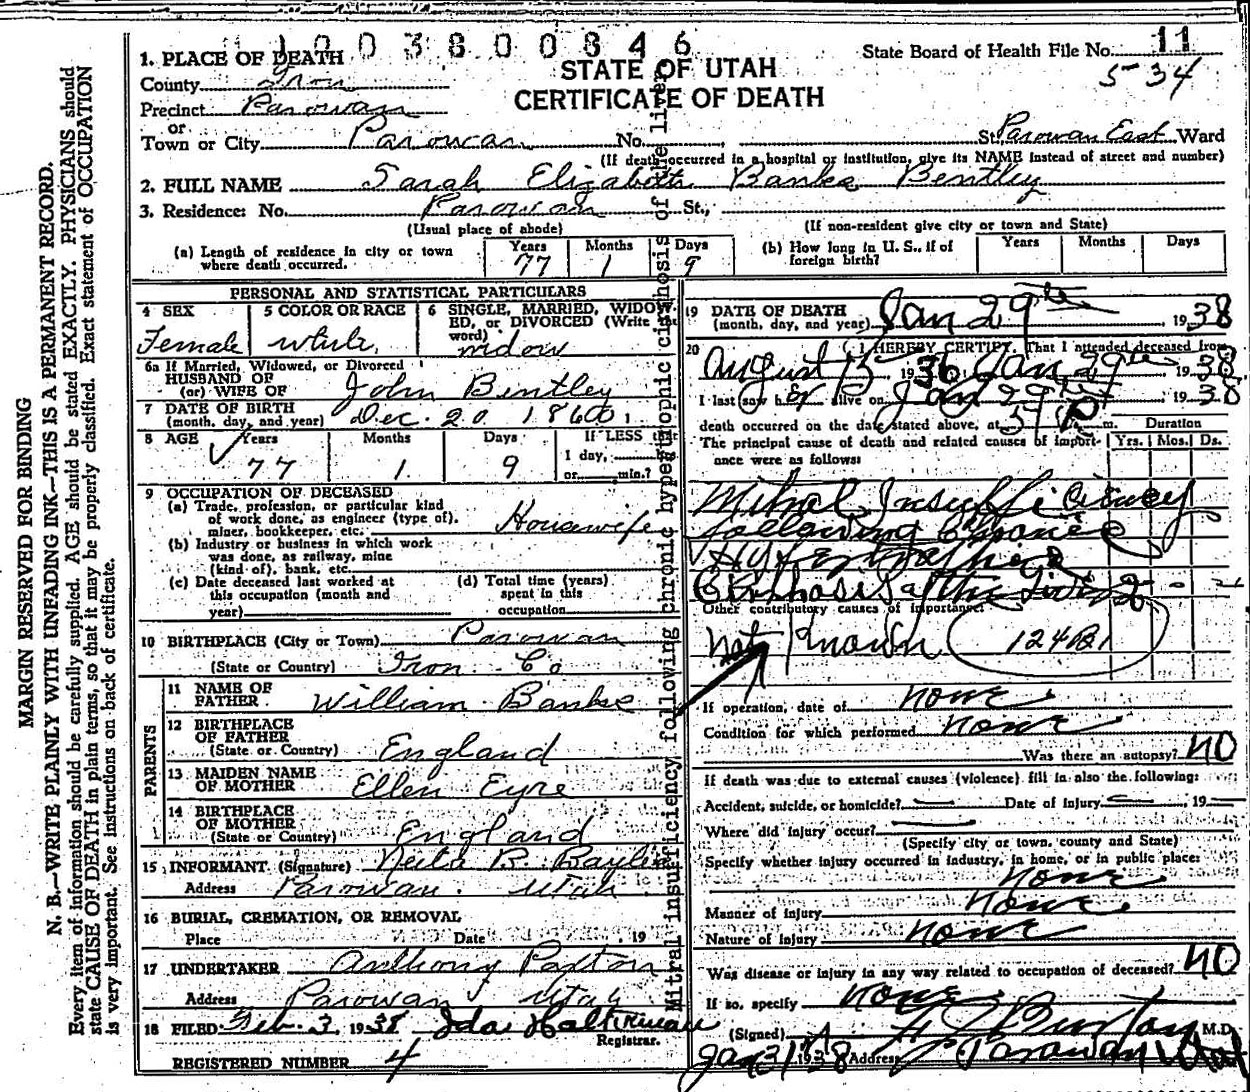 1003800846
1. PLACE OF DEATH
State Board of Health File No. 11
5-34
County Iron
STATE OF UTAH
Precinct Parowan
CERTIFICATE OF DEATH
or
Town or City Parowan No. St. Parowan East Ward
(If death occurred in a hospital or institution, give its NAME instead of street and number)
2. FULL NAME Sarah Elizabeth Banks Bentley
3. Residence: No. Parowan St.,
(Usual place of abode) (If non-resident give city or town and State)
(a) Length of residence in city or town where death occurred. Years 77 Months 1 Days 9
(b) How long in U. S., if of foreign birth? Years Months Days
PERSONAL AND STATISTICAL PARTICULARS
4 SEX Female
5 COLOR OR RACE white
6 SINGLE, MARRIED, WIDOWED, or DIVORCED (Write the word) widow
6a If Married, Widowed, or Divorced
HUSBAND OF
(or) WIFE OF John Bentley
7 DATE OF BIRTH
(month, day, and year) Dec. 20 1860
8 AGE Years 77 Months 1 Days 9 If LESS than 1 day, or min.?
9 OCCUPATION OF DECEASED
(a) Trade, profession, or particular kind
of work done, as engineer (type of),
miner, bookkeeper, etc. Housewife
(b) Industry or business in which work
was done, as railway, mine
(kind of), bank, etc.
(c) Date deceased last worked at
this occupation (month and
year)
(d) Total time (years)
spent in this
occupation
10 BIRTHPLACE (City or Town) Parowan
(State or Country) Iron Co
PARENTS
11 NAME OF
FATHER William Banks
12 BIRTHPLACE
OF FATHER
(State or Country) England
13 MAIDEN NAME
OF MOTHER Ellen Eyre
14 BIRTHPLACE
OF MOTHER
(State or Country) England
15 INFORMANT (Signature)
Address Parowan. Utah
16 BURIAL, CREMATION, OR REMOVAL
Place Date , 19
17 UNDERTAKER Anthony Paxton
Address Parowan Utah
18 FILED Feb. 3, 1938 Ida Halterman
Registrar.
REGISTERED NUMBER 4
19 DATE OF DEATH
(month, day, and year) Jan 29th 1938
20 I HEREBY CERTIFY, That I attended deceased from
August 15 1936 Jan 29th 1938
I last saw her alive on Jan 29th 1938
death occurred on the date stated above, at 5 P m.
Duration
The principal cause of death and related causes of importance were as follows: Yrs. Mos. Ds.
Mitral Insufficiency
following Chronic
Hypertrophic
Cirrhosis of the liver 2 - -
Other contributory causes of importance:
Not Known 124B1
If operation, date of none
Condition for which performed none
Was there an autopsy? NO
If death was due to external causes (violence) fill in also the following:
Accident, suicide, or homicide? Date of injury 19
Where did injury occur?
(Specify city or town, county and State)
Specify whether injury occurred in industry, in home, or in public place:
none
Manner of injury none
Nature of injury none
Was disease or injury in any way related to occupation of deceased? NO
If so, specify none
(Signed) Burton M.D.
Jan 31 1938 Address Parowan Utah
Mitral insufficiency following chronic hypertrophic cirrhosis of the liver
MARGIN RESERVED FOR BINDING
N. B.—WRITE PLAINLY WITH UNFADING INK—THIS IS A PERMANENT RECORD.
Every item of information should be carefully supplied. AGE should be stated EXACTLY. PHYSICIANS should
state CAUSE OF DEATH in plain terms, so that it may be properly classified. Exact statement of OCCUPATION
is very important. See instructions on back of certificate.